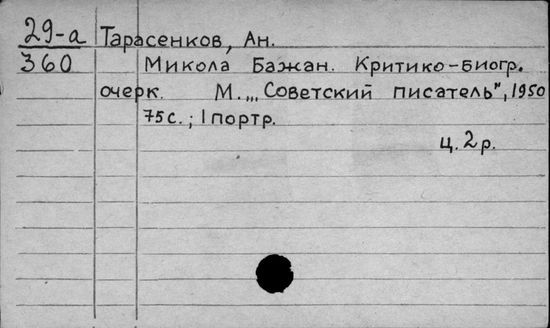 29-а Тарасенков, Ан.
360 Микола Бажан. Критико-биогр.
очерк. М., „Советский писатель", 1950
75с.; 1 портр.
ц. 2 р.